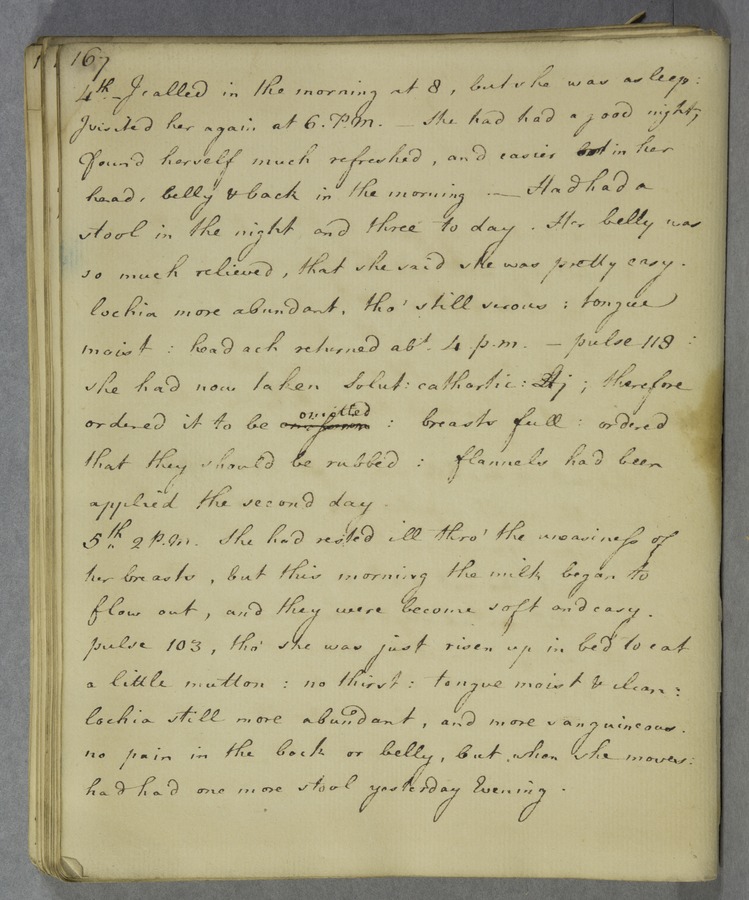 167
4th. - I called in the morning at 8, but she was asleep:
I visited her again at 6. P.M. — She had had a good night,
found herself much refreshed, and easier in her
head, belly & back in the morning — Had had a
stool in the night and three to day. Her belly was
so much relieved, that she said she was pretty easy.
lochia more abundant, tho' still serous : tongue
moist : head ach returned abt. 4. p.m. — pulse 118 :
she had now taken Solut: cathartic: j ; therefore
ordered it to be omitted : breasts full : ordered
that they should be rubbed : flannels had been
applied the second day.
5th. 2 P.M. She had rested ill thro' the uneasiness of
her breasts, but this morning the milk began to
flow out, and they were become soft and easy.
pulse 103, tho' she was just risen up in bed to eat
a little mutton : no thirst : tongue moist & clean :
lochia still more abundant, and more sanguineous.
no pain in the back or belly, but when she moves :
had had one more stool yesterday Evening.